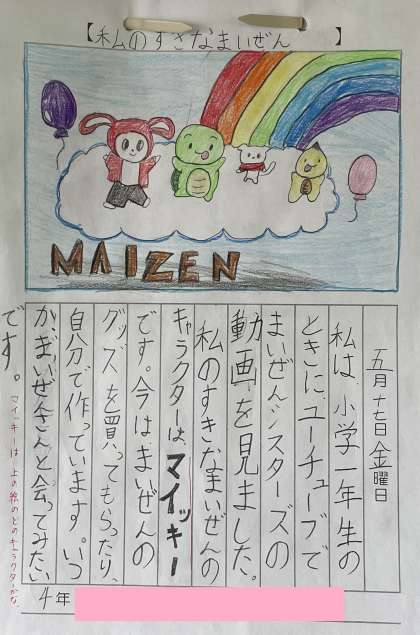 【私のすきなまいぜん】
MAIZEN
五月十七日金曜日
私は、小学一年生の
ときに、ユーチューブで
まいぜんシスターズの
動画を見ました。
私のすきなまいぜんの
キャラクターは、マイッキー
です。今はまいぜんの
グッズを買ってもらったり、
自分で作っています。いつ
か、まいぜんさんと会ってみたい
です。
マイッキーは上の絵のどのキャラクターかな。
4年